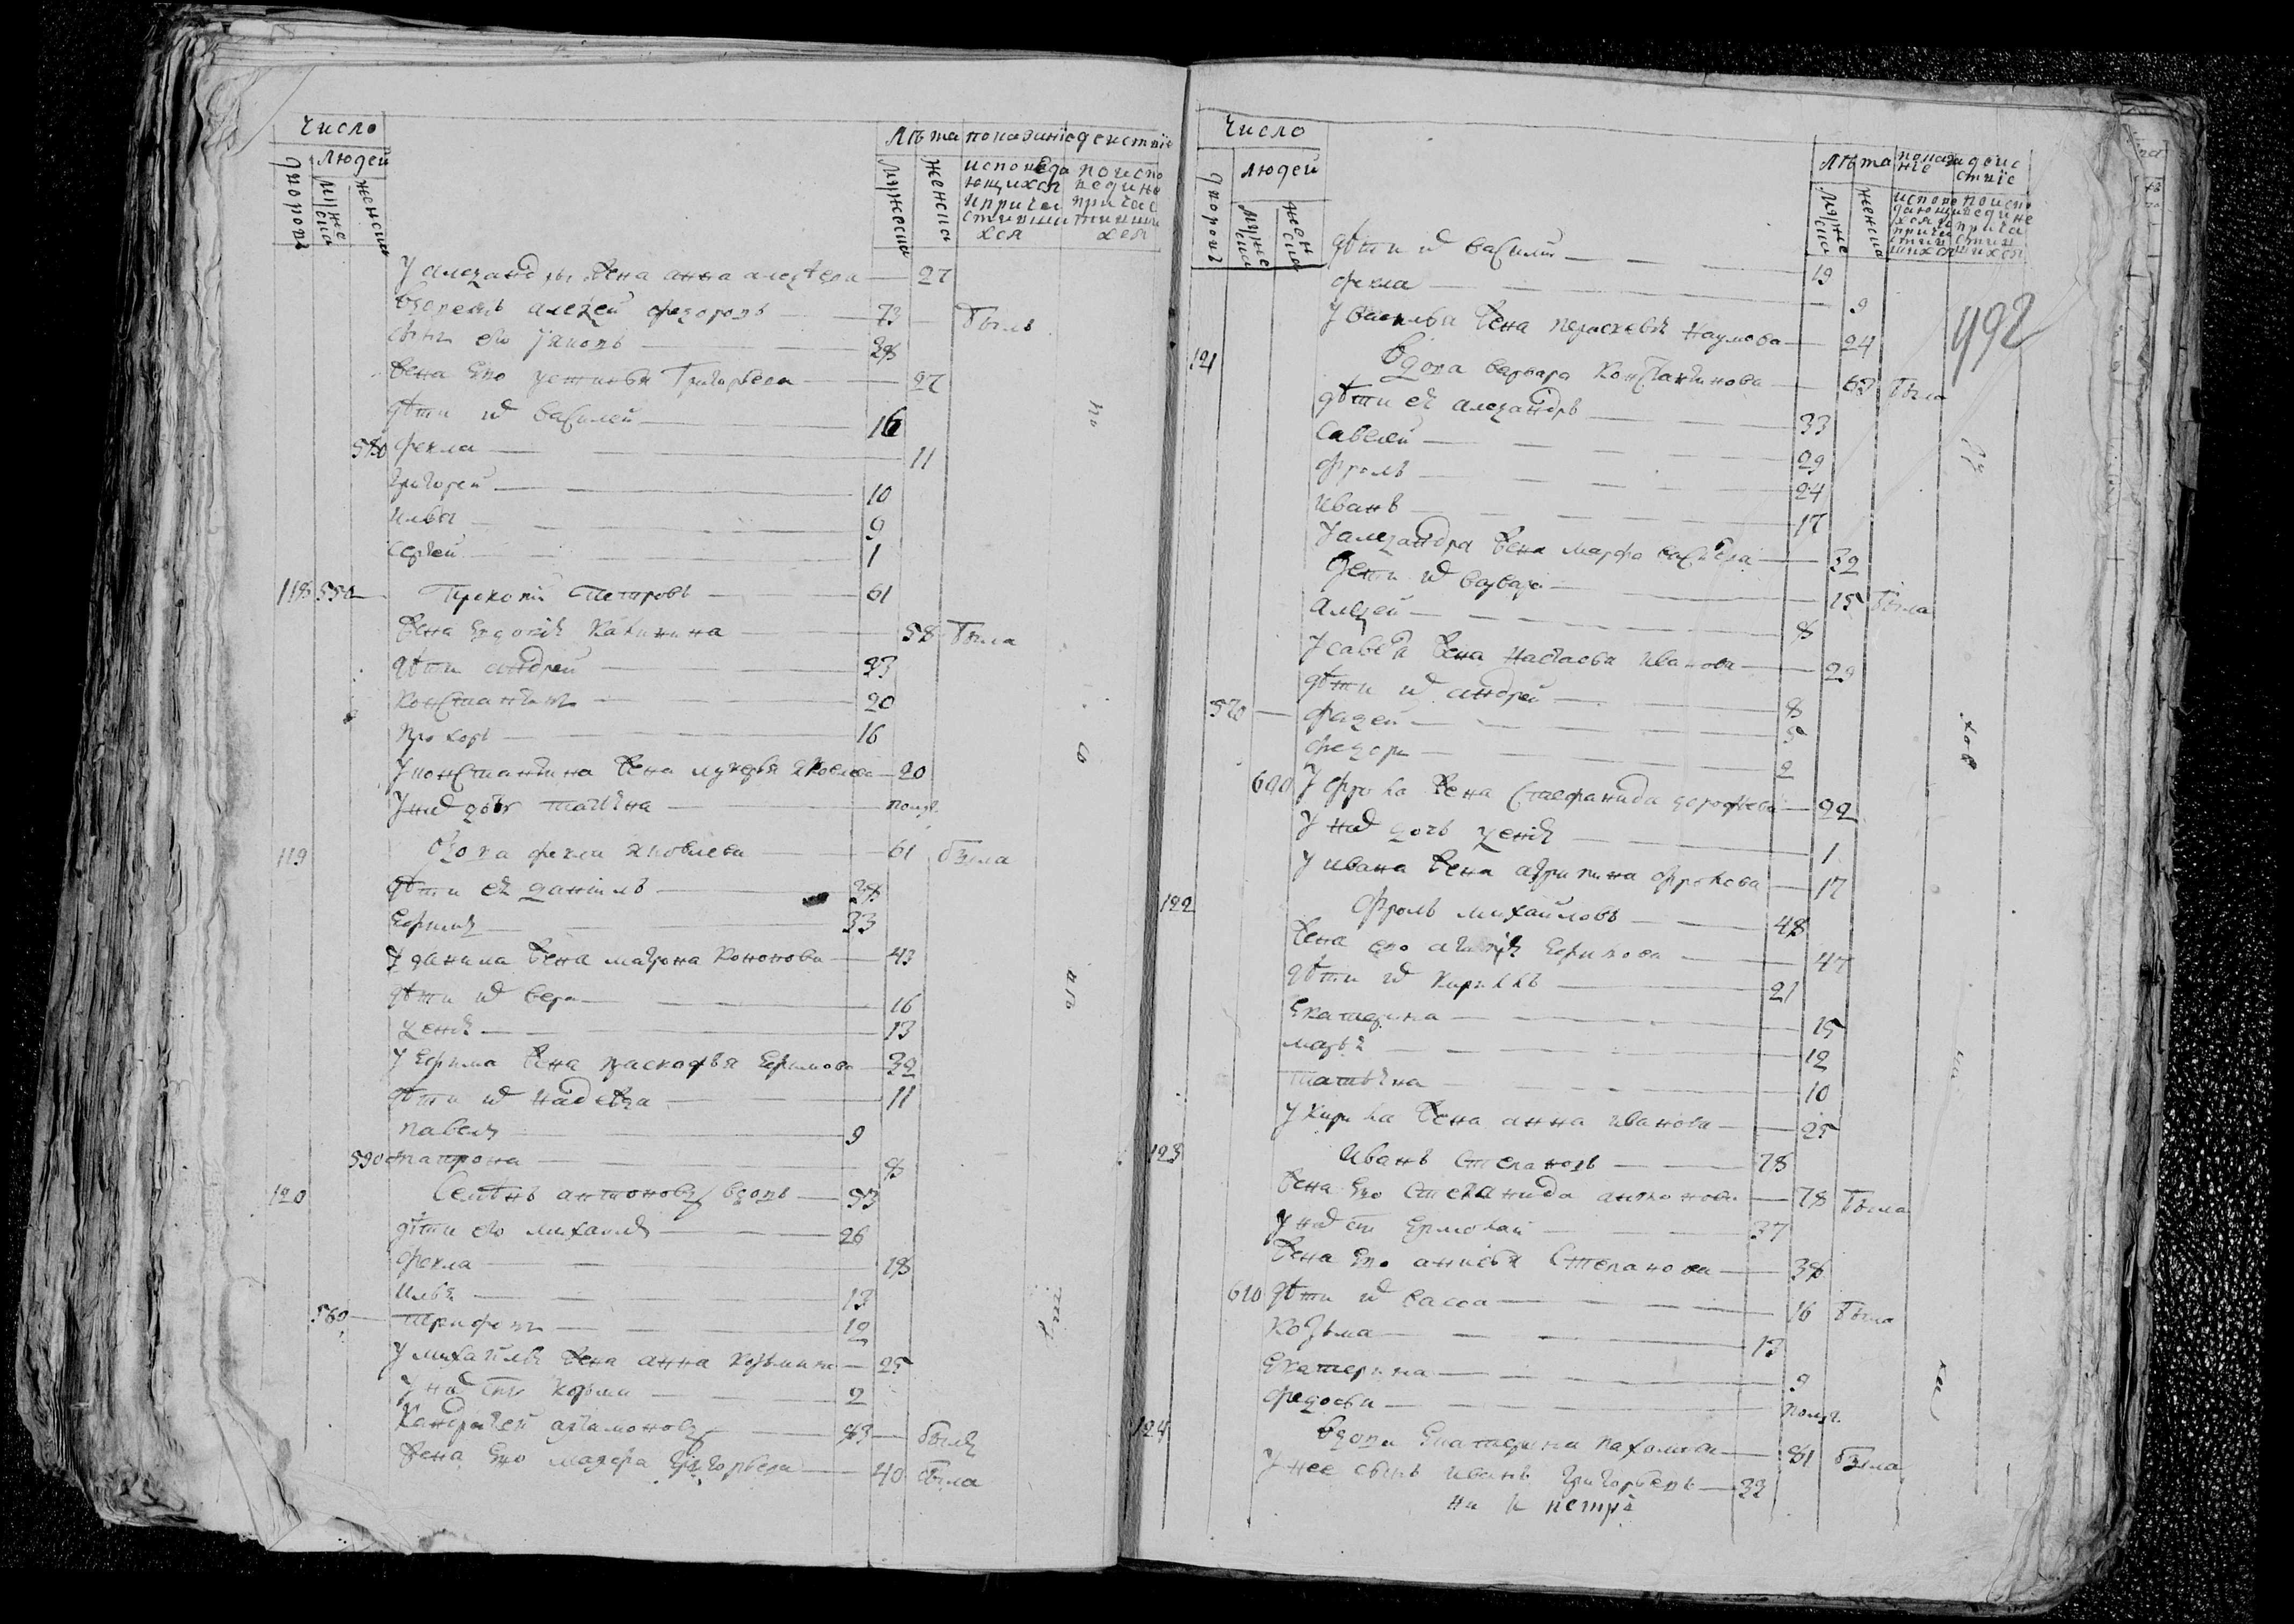 Число
Людей
дворовъ
мужеска
женска
Лѣта показание действie
мужеска
женска
исповедающихся и причастившихся
по исповеди не причастившихся
У александры жена анна алеѯеева — 27
алеѯей федоровъ — 73 былъ
сынъ его — 38
жена его устинья Григорьева — 27
дѣти их василей — 16
580 фекла — 11
григорей — 10
илья — 9
сергей — 1
118 550 Прокопий Петровъ — 61
жена евдокия Калинина — 58 была
дѣти андрей — 23
константинъ — 20
прохоръ — 16
У константина жена лукерья яковлева — 20
У них дочь татьяна — полуг.
119 вдова фекла яковлева — 61 была
дѣти ея данiилъ — 38
ефимъ — 33
У данила жена матрона кононова — 43
дѣти их вера — 16
ѯения — 13
У ефима жена праскофья ефимова — 32
дѣти их надежда — 11
павелъ — 9
590 матрона — 8
120 Семенъ антоновъ вдовъ — 53
дѣти его михаилъ — 26
фекла — 18
илья — 13
560 трифонъ — 12
У михайлы жена анна козьмина — 25
У них сынъ козма — 2
Кандратей артамоновъ — 83 былъ
жена его марфа григорьева — 40 была
не
ис
Число
Людей
дворовъ
мужеска
женска
Лѣта показание действie
мужеска
женска
492
дѣти их василий — 19
фекла — 9
У василья жена парасковья Наумова — 24
121 Вдова варвара Константинова — 63 была
дѣти ея алеѯандръ — 33
савелей — 29
фролъ — 24
иванъ — 17
У алеѯандра жена марфа васильева — 32
дети их варвара — 15 была
алеѯей — 8
У савелья жена настасья иванова — 29
дѣти их андрей — 8
570 фадей — 5
федоръ — 2
600 У фрола жена стефанида дорофеева — 22
У них дочь ѯения — 1
У ивана жена агрипина фролова — 17
122 Фролъ михайловъ — 48
жена его ефимова — 47
дѣти их кирилъ — 21
екатерина — 15
марья — 12
татьяна — 10
У кирила жена анна иванова — 25
123 Иванъ степановъ — 78
жена его степанида антонова — 78 была
У них сынъ ермолай — 37
жена его анисья Степанова — 38
610 дѣти их васса — 16 была
козьма — 13
екатерина — 9
федосья — полуг.
124 вдова екатерина пахомова — 81 была
У нее сынъ иванъ григорьевъ — 33
петръ